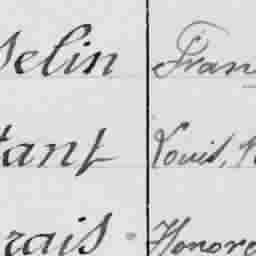 selin Fran
tant Louis, 
rais Honoré